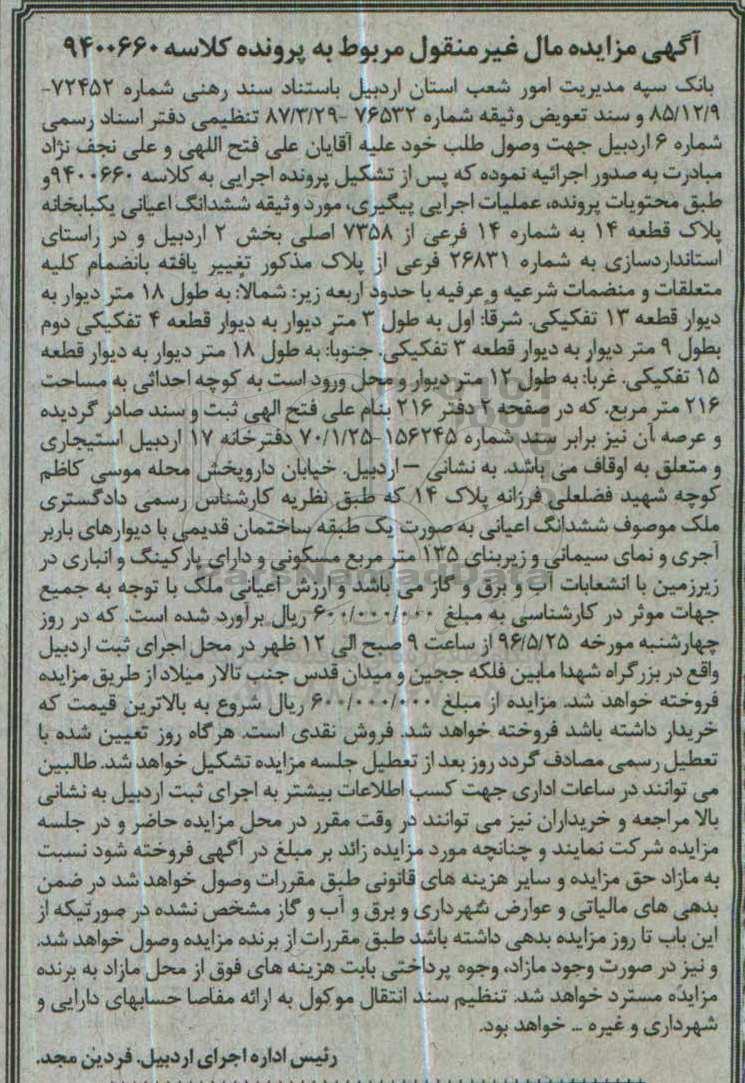 آگهی مزایده مال غیرمنقول مربوط به پرونده کلاسه ۹۴۰۰۶۶۰
بانک سپه مدیریت امور شعب استان اردبیل باستناد سند رهنی شماره ۷۲۴۵۲-
۸۵/۱۲/۹ و سند تعویض وثیقه شماره ۷۶۵۳۲ -۸۷/۳/۲۹ تنظیمی دفتر اسناد رسمی
شماره ۶ اردبیل جهت وصول طلب خود علیه آقایان علی فتح اللهی و علی نجف نژاد
مبادرت به صدور اجرائیه نموده که پس از تشکیل پرونده اجرایی به کلاسه ۹۴۰۰۶۶۰و
طبق محتویات پرونده، عملیات اجرایی پیگیری، مورد وثیقه ششدانگ اعیانی یکبابخانه
پلاک قطعه ۱۴ به شماره ۱۴ فرعی از ۷۳۵۸ اصلی بخش ۲ اردبیل و در راستای
استانداردسازی به شماره ۲۶۸۳۱ فرعی از پلاک مذکور تغییر یافته بانضمام کلیه
متعلقات و منضمات شرعیه و عرفیه با حدود اربعه زیر: شمالا: به طول ۱۸ متر دیوار به
دیوار قطعه ۱۳ تفکیکی. شرقاً: اول به طول ۳ متر دیوار به دیوار قطعه ۴ تفکیکی دوم
بطول ۹ متر دیوار به دیوار قطعه ۳ تفکیکی. جنوباً: به طول ۱۸ متر دیوار به دیوار قطعه
۱۵ تفکیکی. غربا: به طول ۱۲ متر دیوار و محل ورود است به کوچه احداثی به مساحت
۲۱۶ متر مربع. که در صفحه ۲ دفتر ۲۱۶ بنام علی فتح الهی ثبت و سند صادر گردیده
و عرصه آن نیز برابر سند شماره ۱۵۶۲۴۵-۷۰/۱/۲۵ دفترخانه ۱۷ اردبیل استیجاری
و متعلق به اوقاف می باشد. به نشانی – اردبیل. خیابان داروپخش محله موسی کاظم
کوچه شهید فضلعلی فرزانه پلاک ۱۴ که طبق نظریه کارشناس رسمی دادگستری
ملک موصوف ششدانگ اعیانی به صورت یک طبقه ساختمان قدیمی با دیوارهای باربر
آجری و نمای سیمانی و زیربنای ۱۳۵ متر مربع مسکونی و دارای پارکینگ و انباری در
زیرزمین با انشعابات آب و برق و گاز می باشد و ارزش اعیانی ملک با توجه به جمیع
جهات موثر در کارشناسی به مبلغ ۶۰۰/۰۰۰/۰۰۰ ریال برآورد شده است. که در روز
چهارشنبه مورخه ۹۶/۵/۲۵ از ساعت ۹ صبح الی ۱۲ ظهر در محل اجرای ثبت اردبیل
واقع در بزرگراه شهدا مابین فلکه ججین و میدان قدس جنب تالار میلاد از طریق مزایده
فروخته خواهد شد. مزایده از مبلغ ۶۰۰/۰۰۰/۰۰۰ ریال شروع به بالاترین قیمت که
خریدار داشته باشد فروخته خواهد شد. فروش نقدی است. هرگاه روز تعیین شده با
تعطیل رسمی مصادف گردد روز بعد از تعطیل جلسه مزایده تشکیل خواهد شد. طالبین
می توانند در ساعات اداری جهت کسب اطلاعات بیشتر به اجرای ثبت اردبیل به نشانی
بالا مراجعه و خریداران نیز می توانند در وقت مقرر در محل مزایده حاضر و در جلسه
مزایده شرکت نمایند و چنانچه مورد مزایده زائد بر مبلغ در آگهی فروخته شود نسبت
به مازاد حق مزایده و سایر هزینه های قانونی طبق مقررات وصول خواهد شد در ضمن
بدهی های مالیاتی و عوارض شهرداری و برق و آب و گاز مشخص نشده در صورتیکه از
این باب تا روز مزایده بدهی داشته باشد طبق مقررات از برنده مزایده وصول خواهد شد.
و نیز در صورت وجود مازاد، وجوه پرداختی بابت هزینه های فوق از محل مازاد به برنده
مزایده مسترد خواهد شد. تنظیم سند انتقال موکول به ارائه مفاصا حسابهای دارایی و
شهرداری و غیره ... خواهد بود.
رئیس اداره اجرای اردبیل. فردین مجد.
ParsNamadData